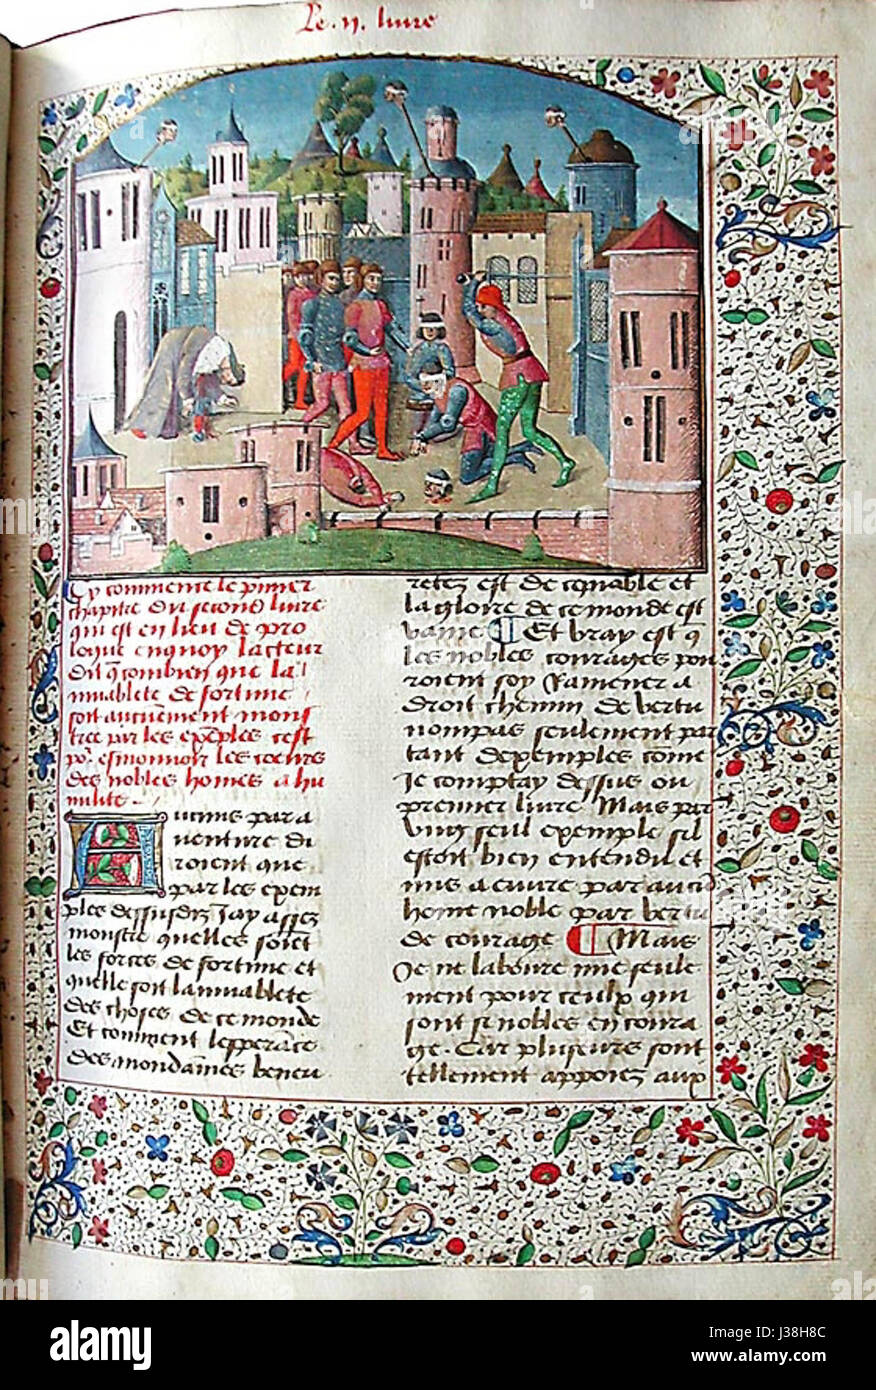 Le .ii. liure
Cy commence le pmier
chapitre du second liure
qui est en lieu de pro
logue en quoy lacteur
dit q combien que la
muablete de fortune
soit aucunement mons
tree par les exeples cest
por esmouuoir les coeurs
des nobles homes a hu
milite .
Aucuns par a
uenture di
roient que
par les exem
ples dessusdiz Jay assez
monstre quelles soiet
les forces de fortune et
quelle soit la muablete
des choses de ce monde
Et comment lesperace
des mondaines beneu
retez est decepuable et
la gloire de ce monde est
vaine Et vray est q
les nobles courages pou
roient soy Ramener a
droit chemin de vertu
non pas seulement par
tant dexemples come
Je comptay dessus ou
premier liure Mais par
vng seul exemple sil
estoit bien entendu et
mis a euure par aucu
home noble par vertu
de courage Mais
Je ne laboure mie seule
ment pour ceulx qui
sont si nobles en coura
ge. Car pluseurs sont
tellement appoiez aux
alamy
Image ID: J38H8C
www.alamy.com